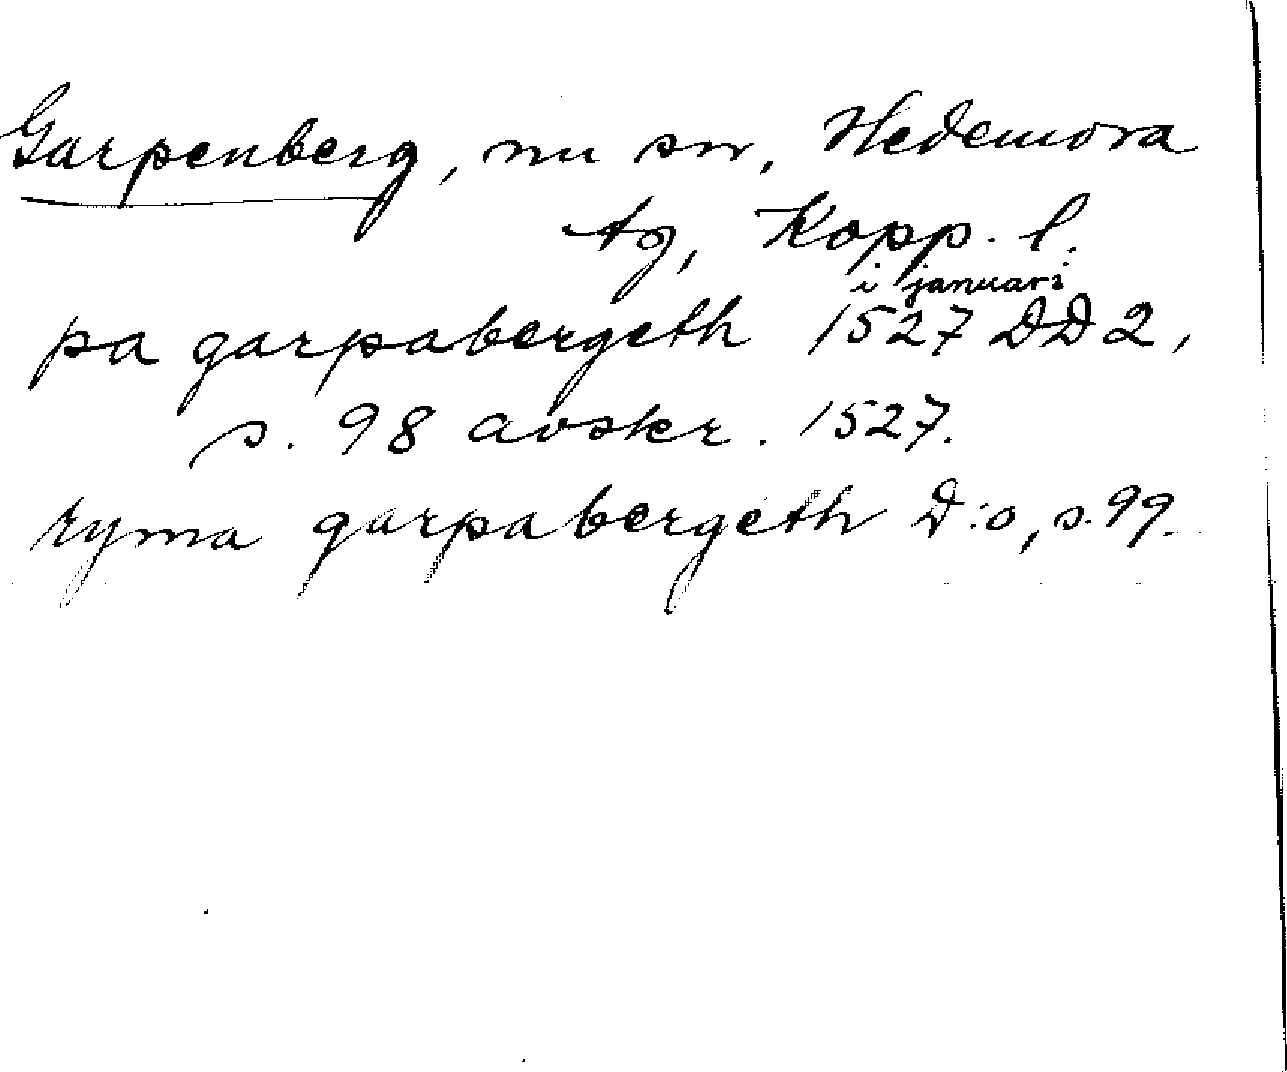 Garpenberg, nu sn, Hedemora
tg, Kopp. l.
i januari
pa garpabergeth 1527 DD 2,
s. 98 avskr. 1527.
ryma garpabergeth D:o, s. 99.